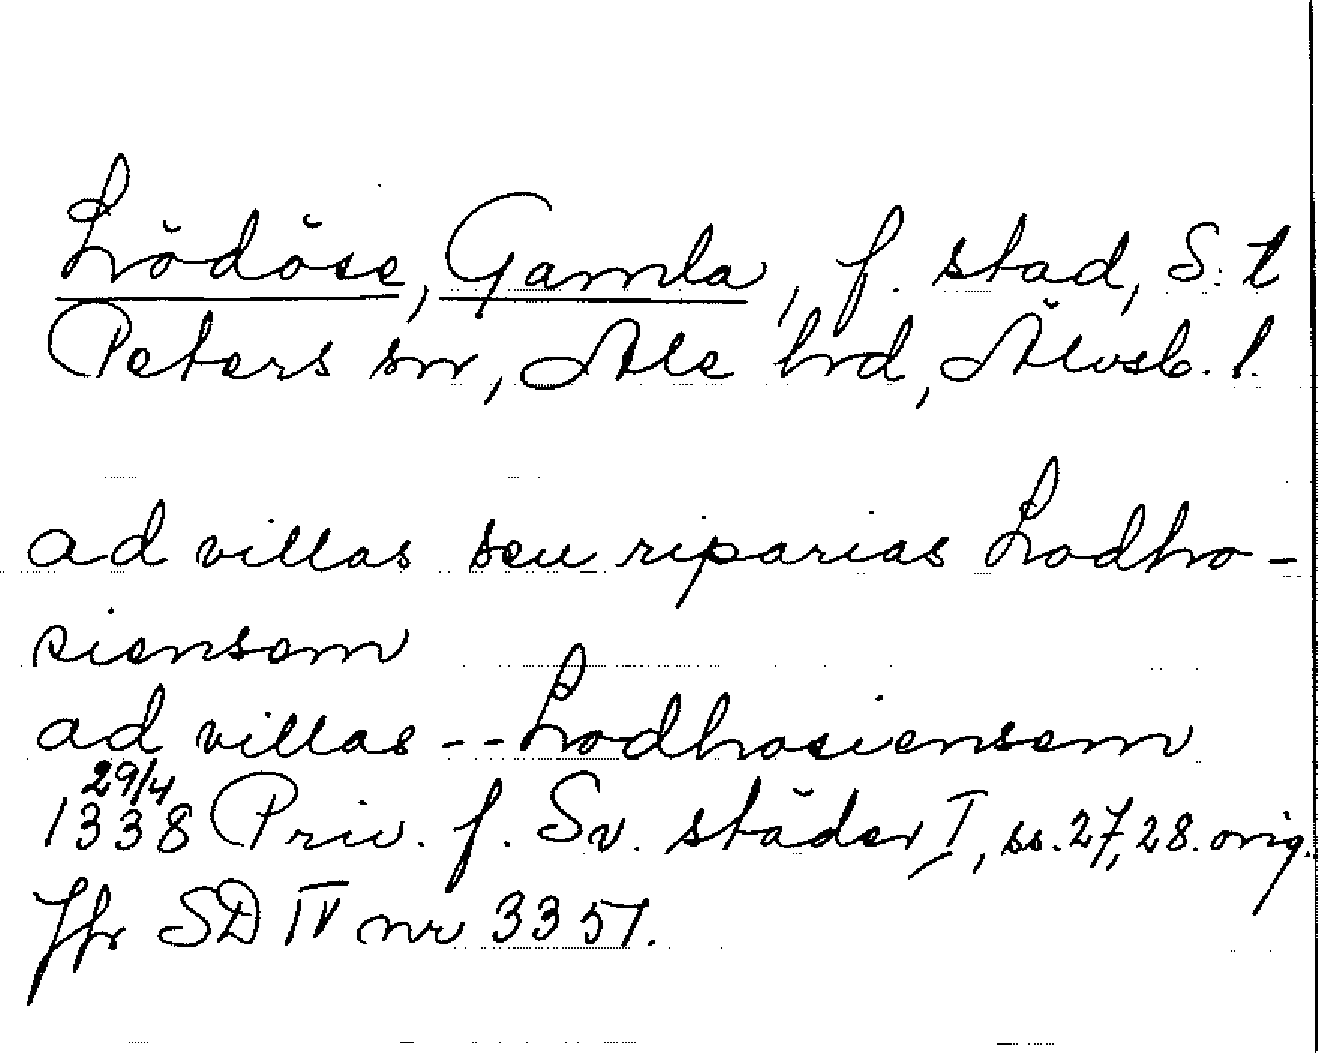 Lödöse, Gamla, f. stad, S:t
Peters sn, Ale hd, Älvsb. l.
ad villas seu riparias Lodho-
siensem
ad villas -- Lodhosiensem
29/4
1338 Priv. f. Sv. städer I, ss. 27, 28. orig.
Jfr SD IV nr 3357.